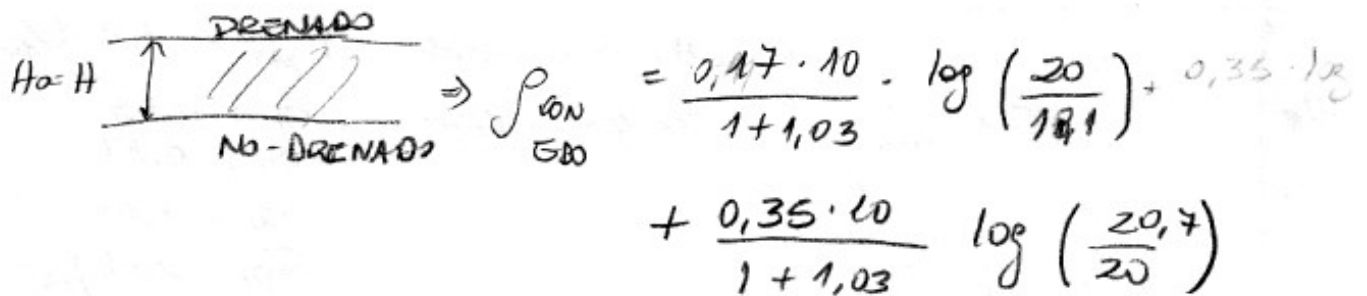 DRENADO
Ha=H
NO-DRENADO
⇒ ρ CON EDO = 0,17 · 10 / 1 + 1,03 · log (20 / ) + 0,35 · log
+ 0,35 · 10 / 1 + 1,03 log (20,7 / 20)